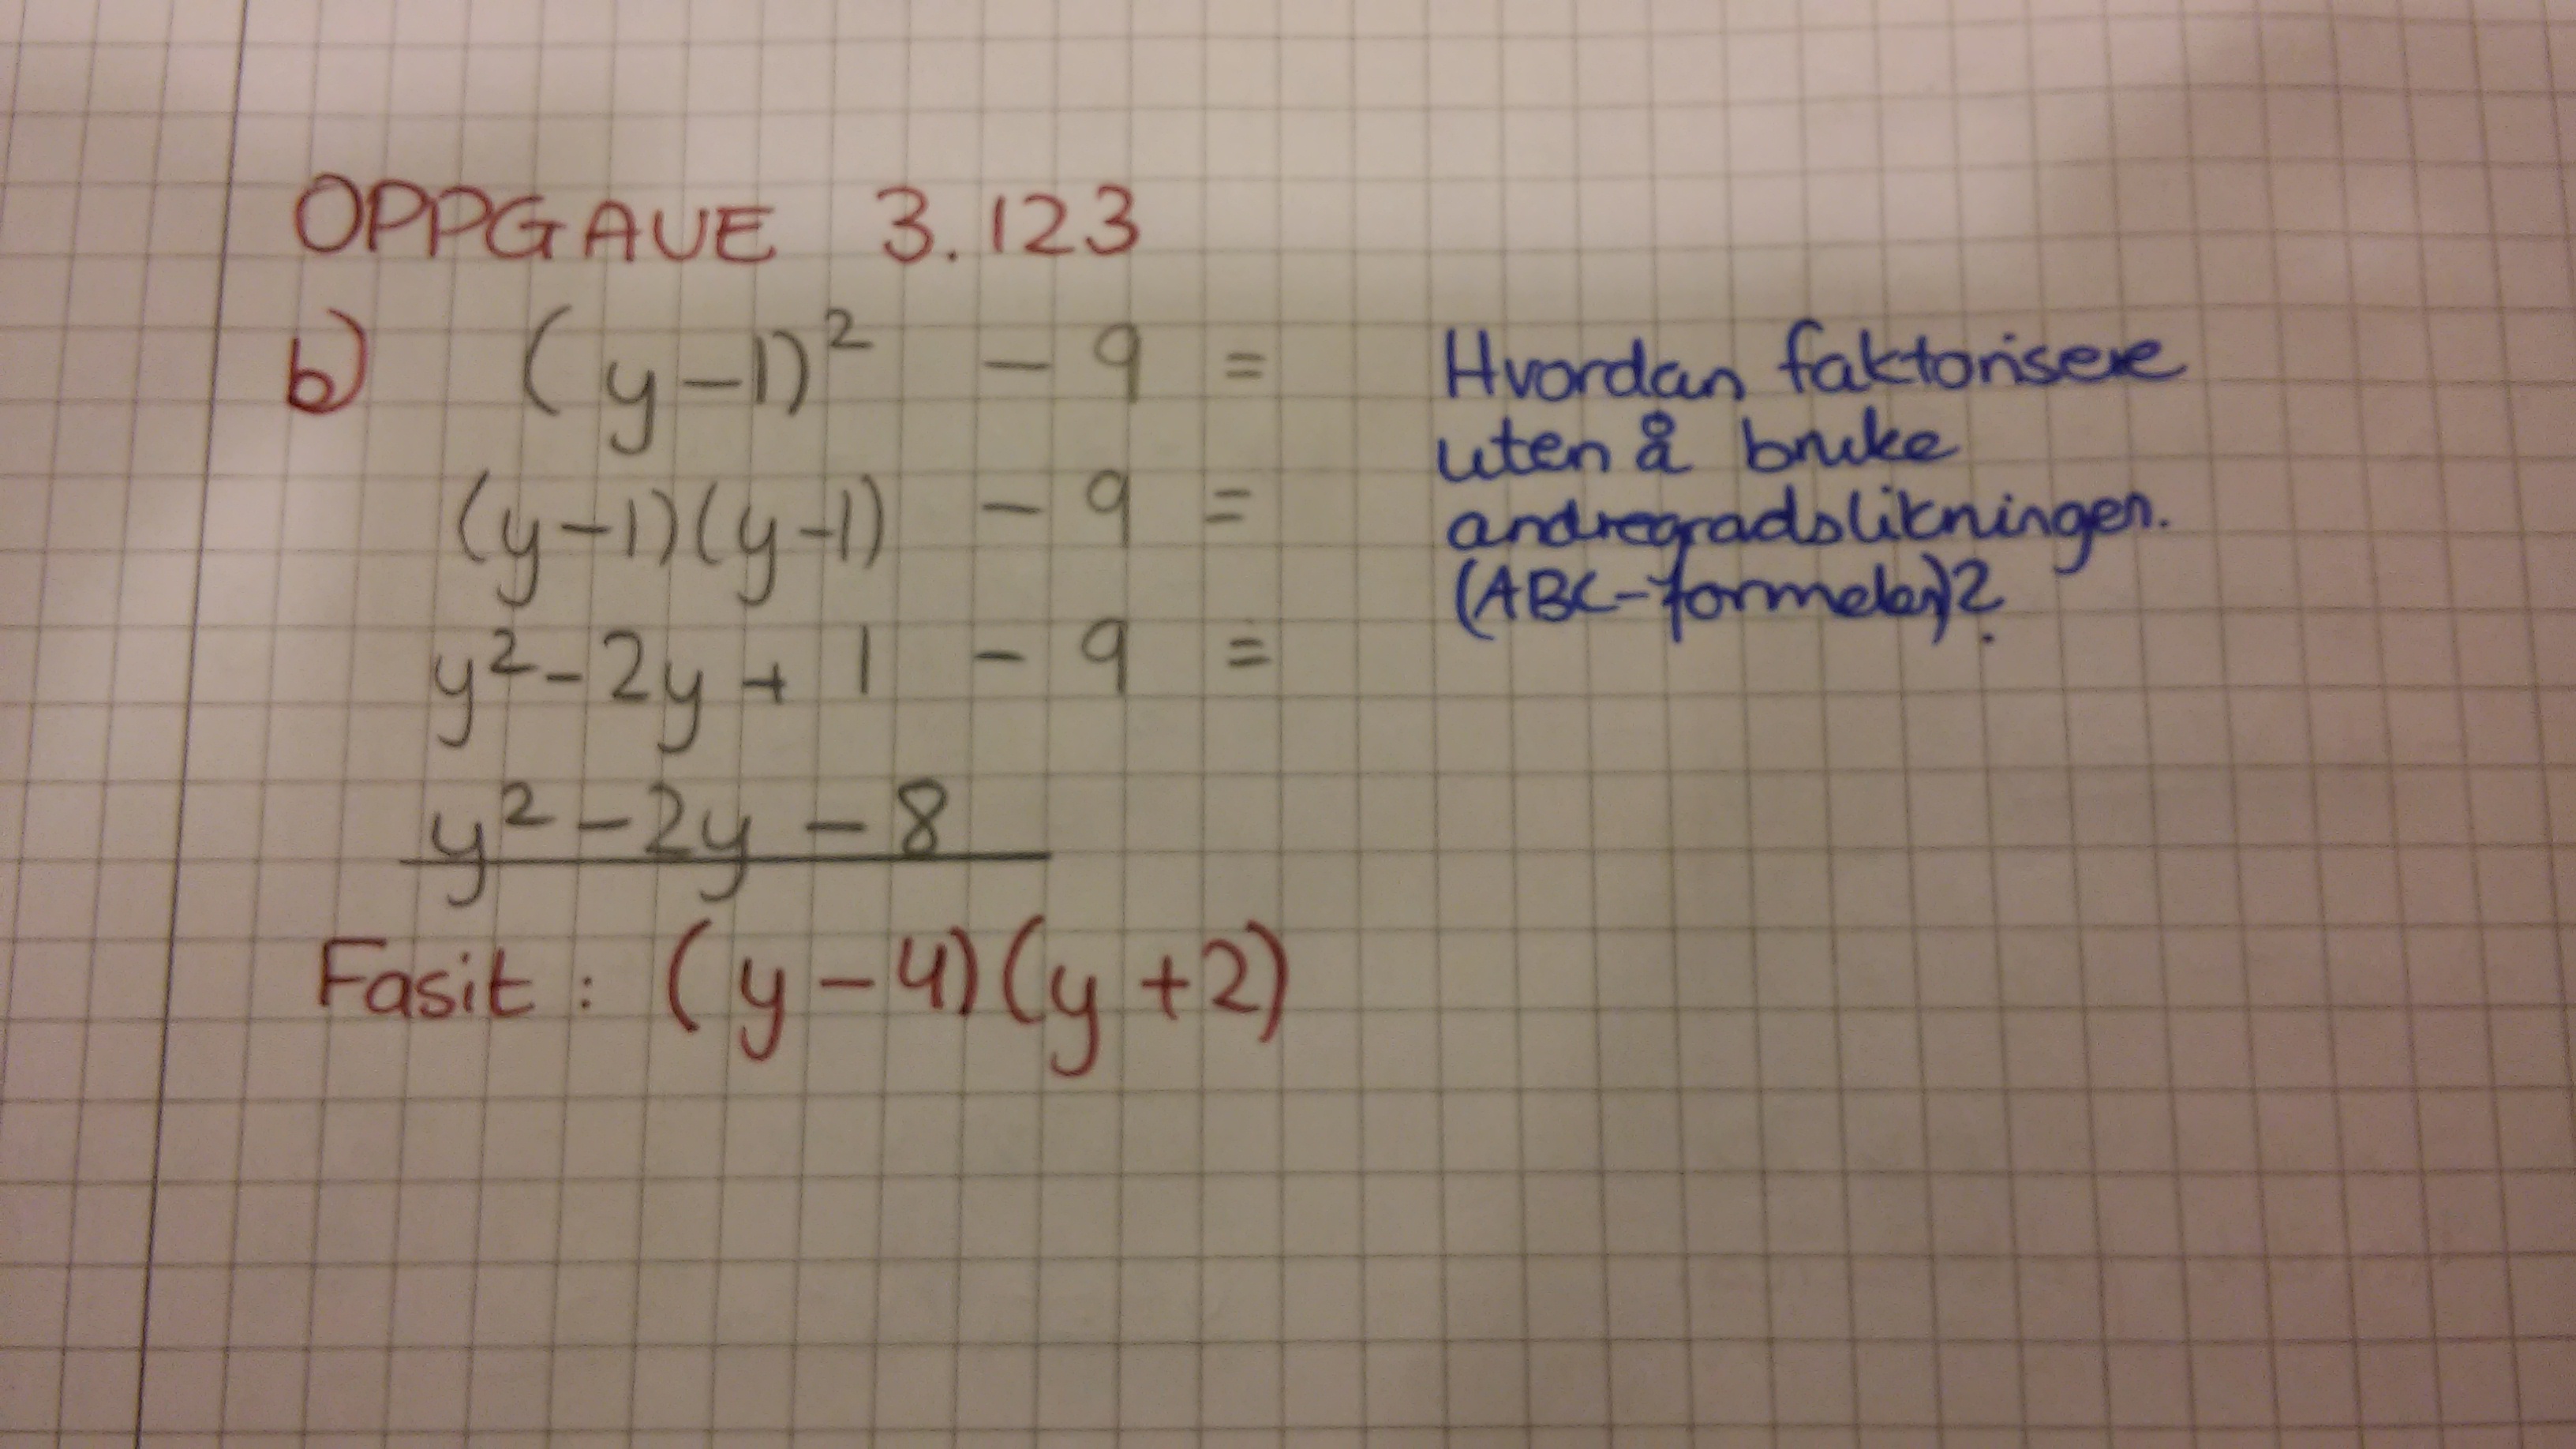 OPPGAVE 3.123
b) (y-1)² - 9 =
(y-1)(y-1) - 9 =
y² - 2y + 1 - 9 =
y² - 2y - 8
Fasit: (y-4)(y+2)
Hvordan faktorisere
uten å bruke
andregradslikningen.
(ABC-formelen)?